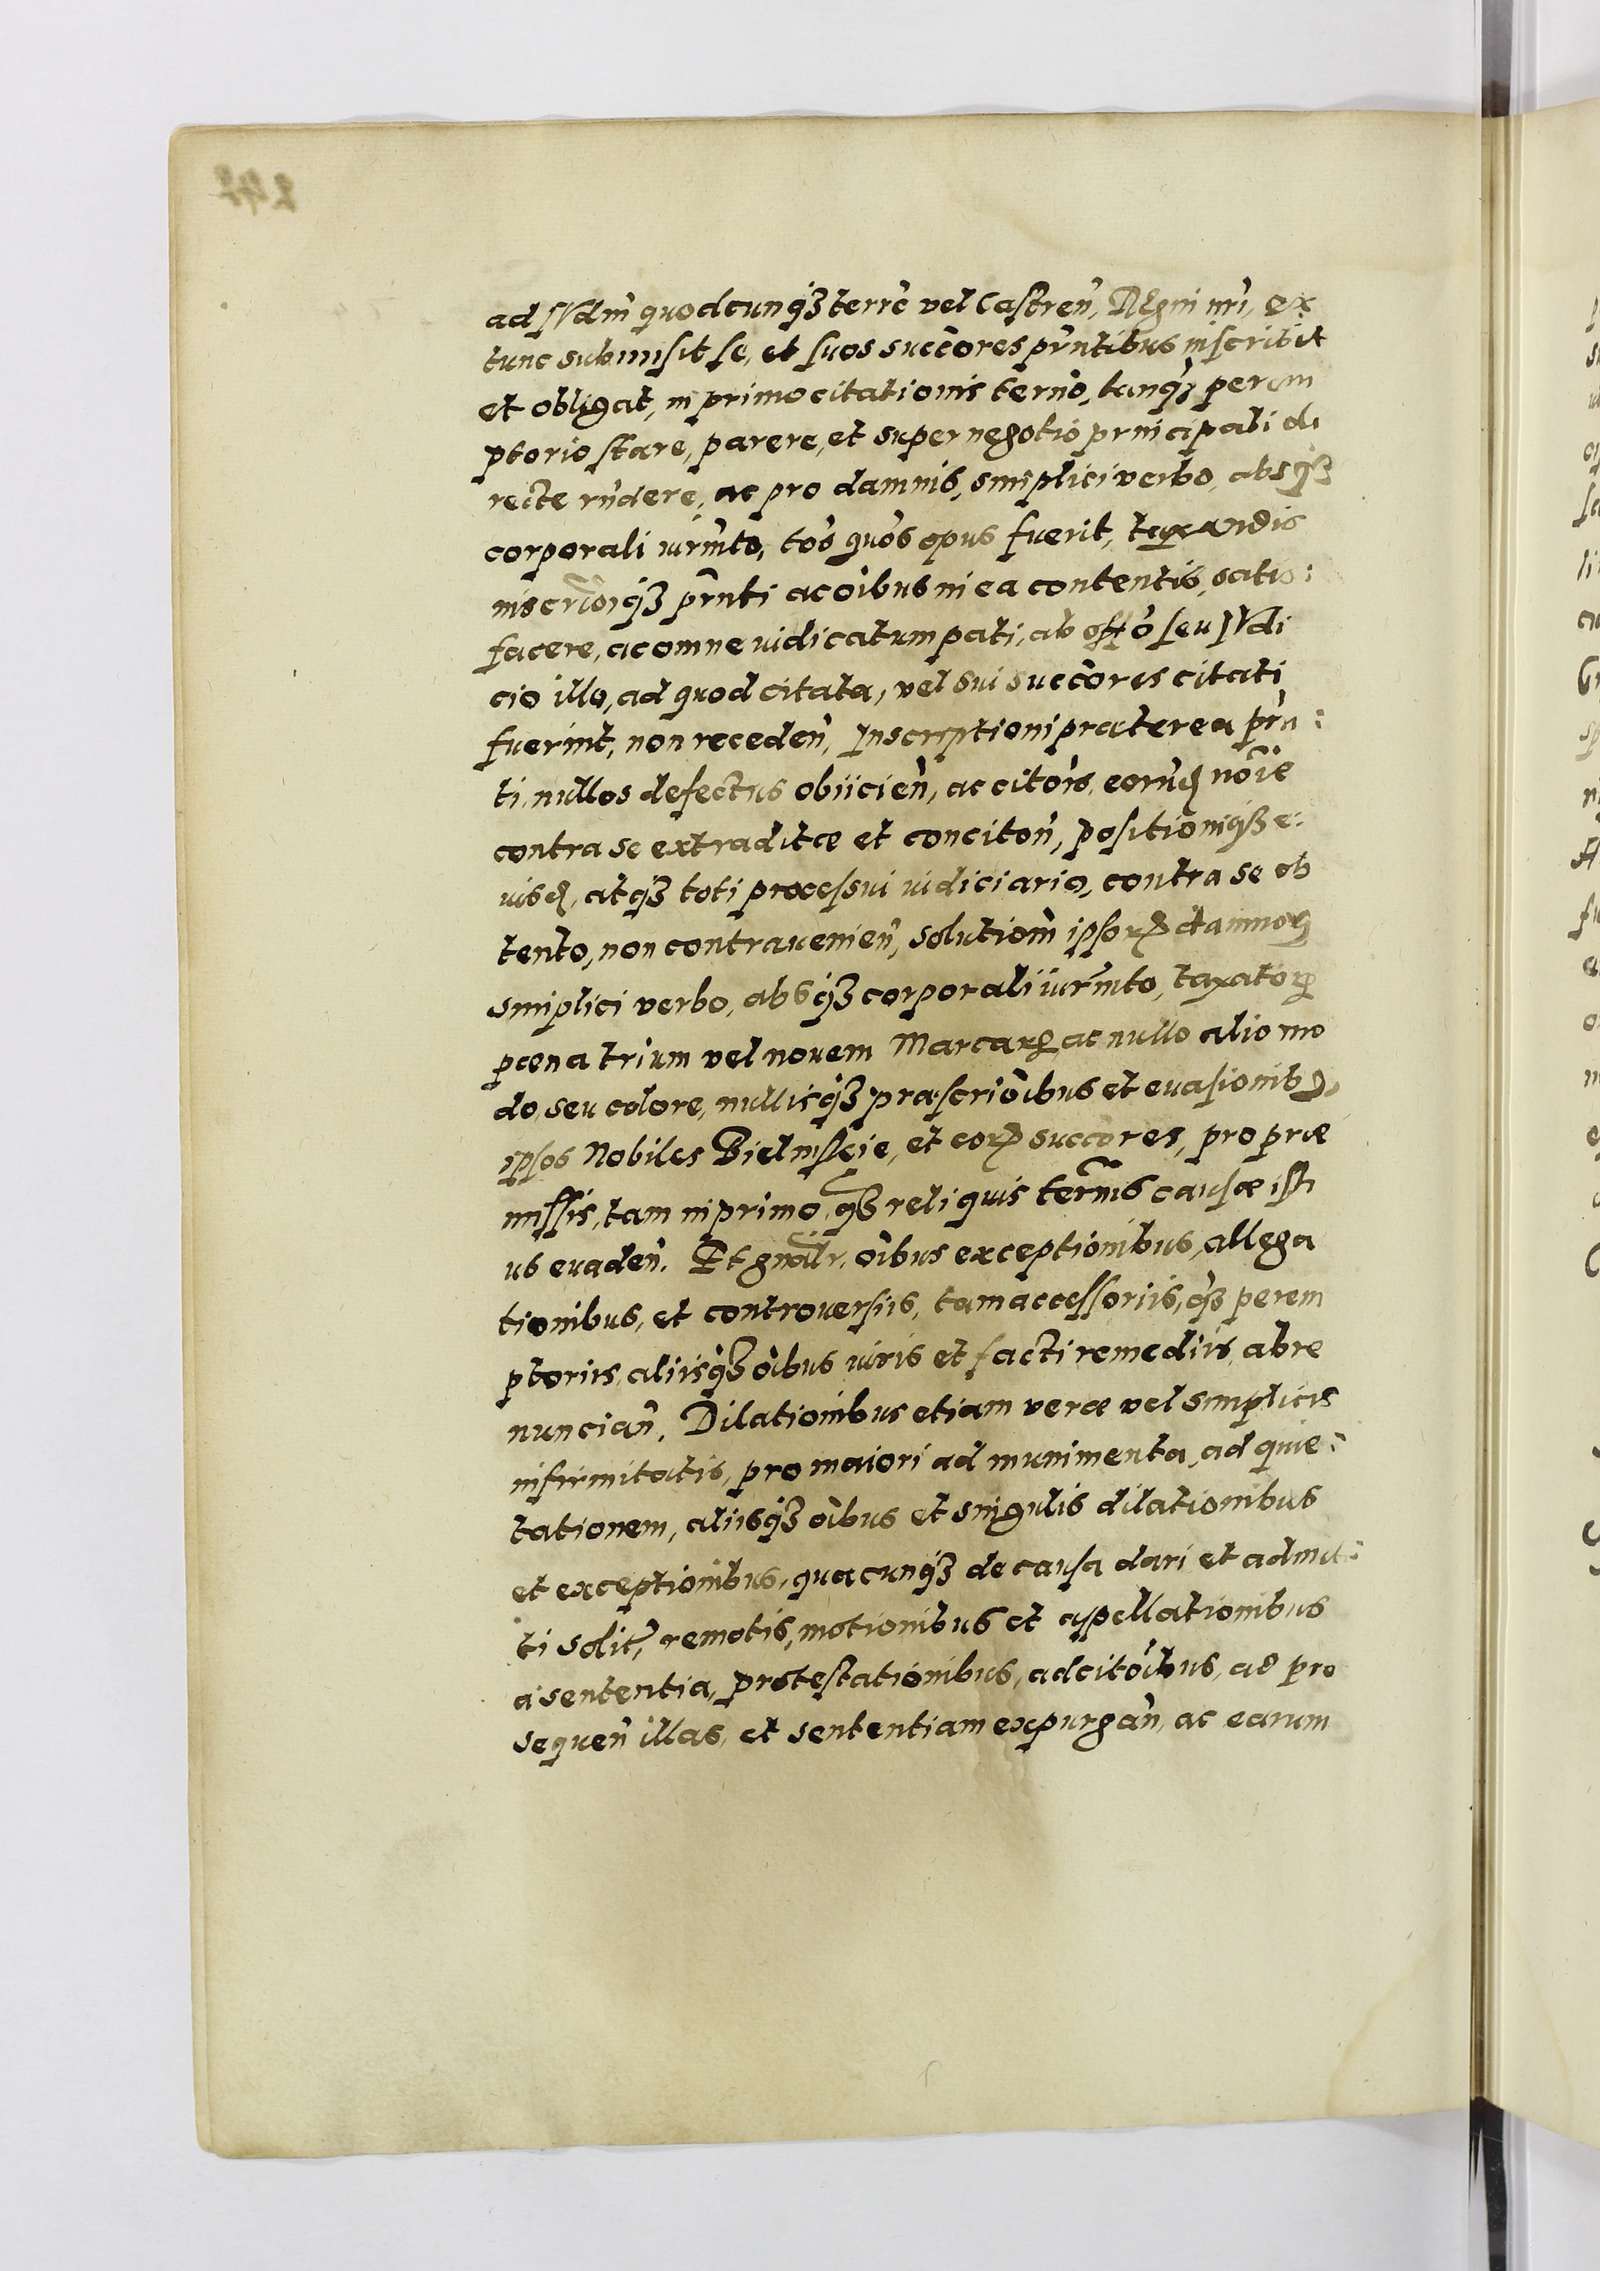 ad IVdm̃ quodcunqꝫ terrẽ vel Castreñ, Regni nrĩ, ex
tunc submisit se, et suos succõres pñntibus inscribit
et obligat, in primo citationis termõ, tanqꝫ perem
ptorio stare, parere, et super negotio principali di
recte rñdere, ac pro damnis, simplici verbo, absqꝫ
corporali iurm̃to, tõs quõs opus fuerit, taxandis
inscrĩõiqꝫ pñnti ac oĩbus in ea contentis, satis:
facere, ac omne iudicatum pati, ab offõ seu IVdi
cio illo, ad quod citata, vel sui succõres citati
fuerint, non recedeñ, Inscriptioni præterea pñn:
ti, nullos defectus obiicieñ, ac citõis, eorũdꝫ nõie
contra se extraditæ et concitoñ, positioniqꝫ e:
iusdꝫ, atqꝫ toti processui iudiciario, contra se ob
tento, non contravenieñ, solutiom̃ ipsorꝝ damnorꝝ
simplici verbo, absqꝫ corporali iurm̃to, taxatorꝝ
poena trium vel novem Marcarꝝ ac nullo alio mo
do, seu colore, nullisqꝫ præscriõibus et evasionibꝫ
ipsos Nobiles Bielinscie, et eorꝝ succõres, pro præ
missis, tam in primo, qꝫ reliquis termis causæ isti
us evadeñ. Et gnãlr, oĩbus exceptionibus, allega
tionibus, et controversiis, tam accessoriis, qꝫ perem
ptoriis, aliisqꝫ oĩbus iuris et facti remediis, abre
nunciañ, Dilationibus etiam veræ vel simplicis
infirmitatis, pro maiori ad munimenta, ad quie:
tationem, aliisqꝫ oĩbus et singulis dilationibus
et exceptionibus, quacunqꝫ de causa dari et admit:
ti solit̃, remotis, motionibus et appellationibus
a sententia, protestationibus, ad citõibus, ad pro
sequeñ illas, et sententiam expurgañ, ac earum